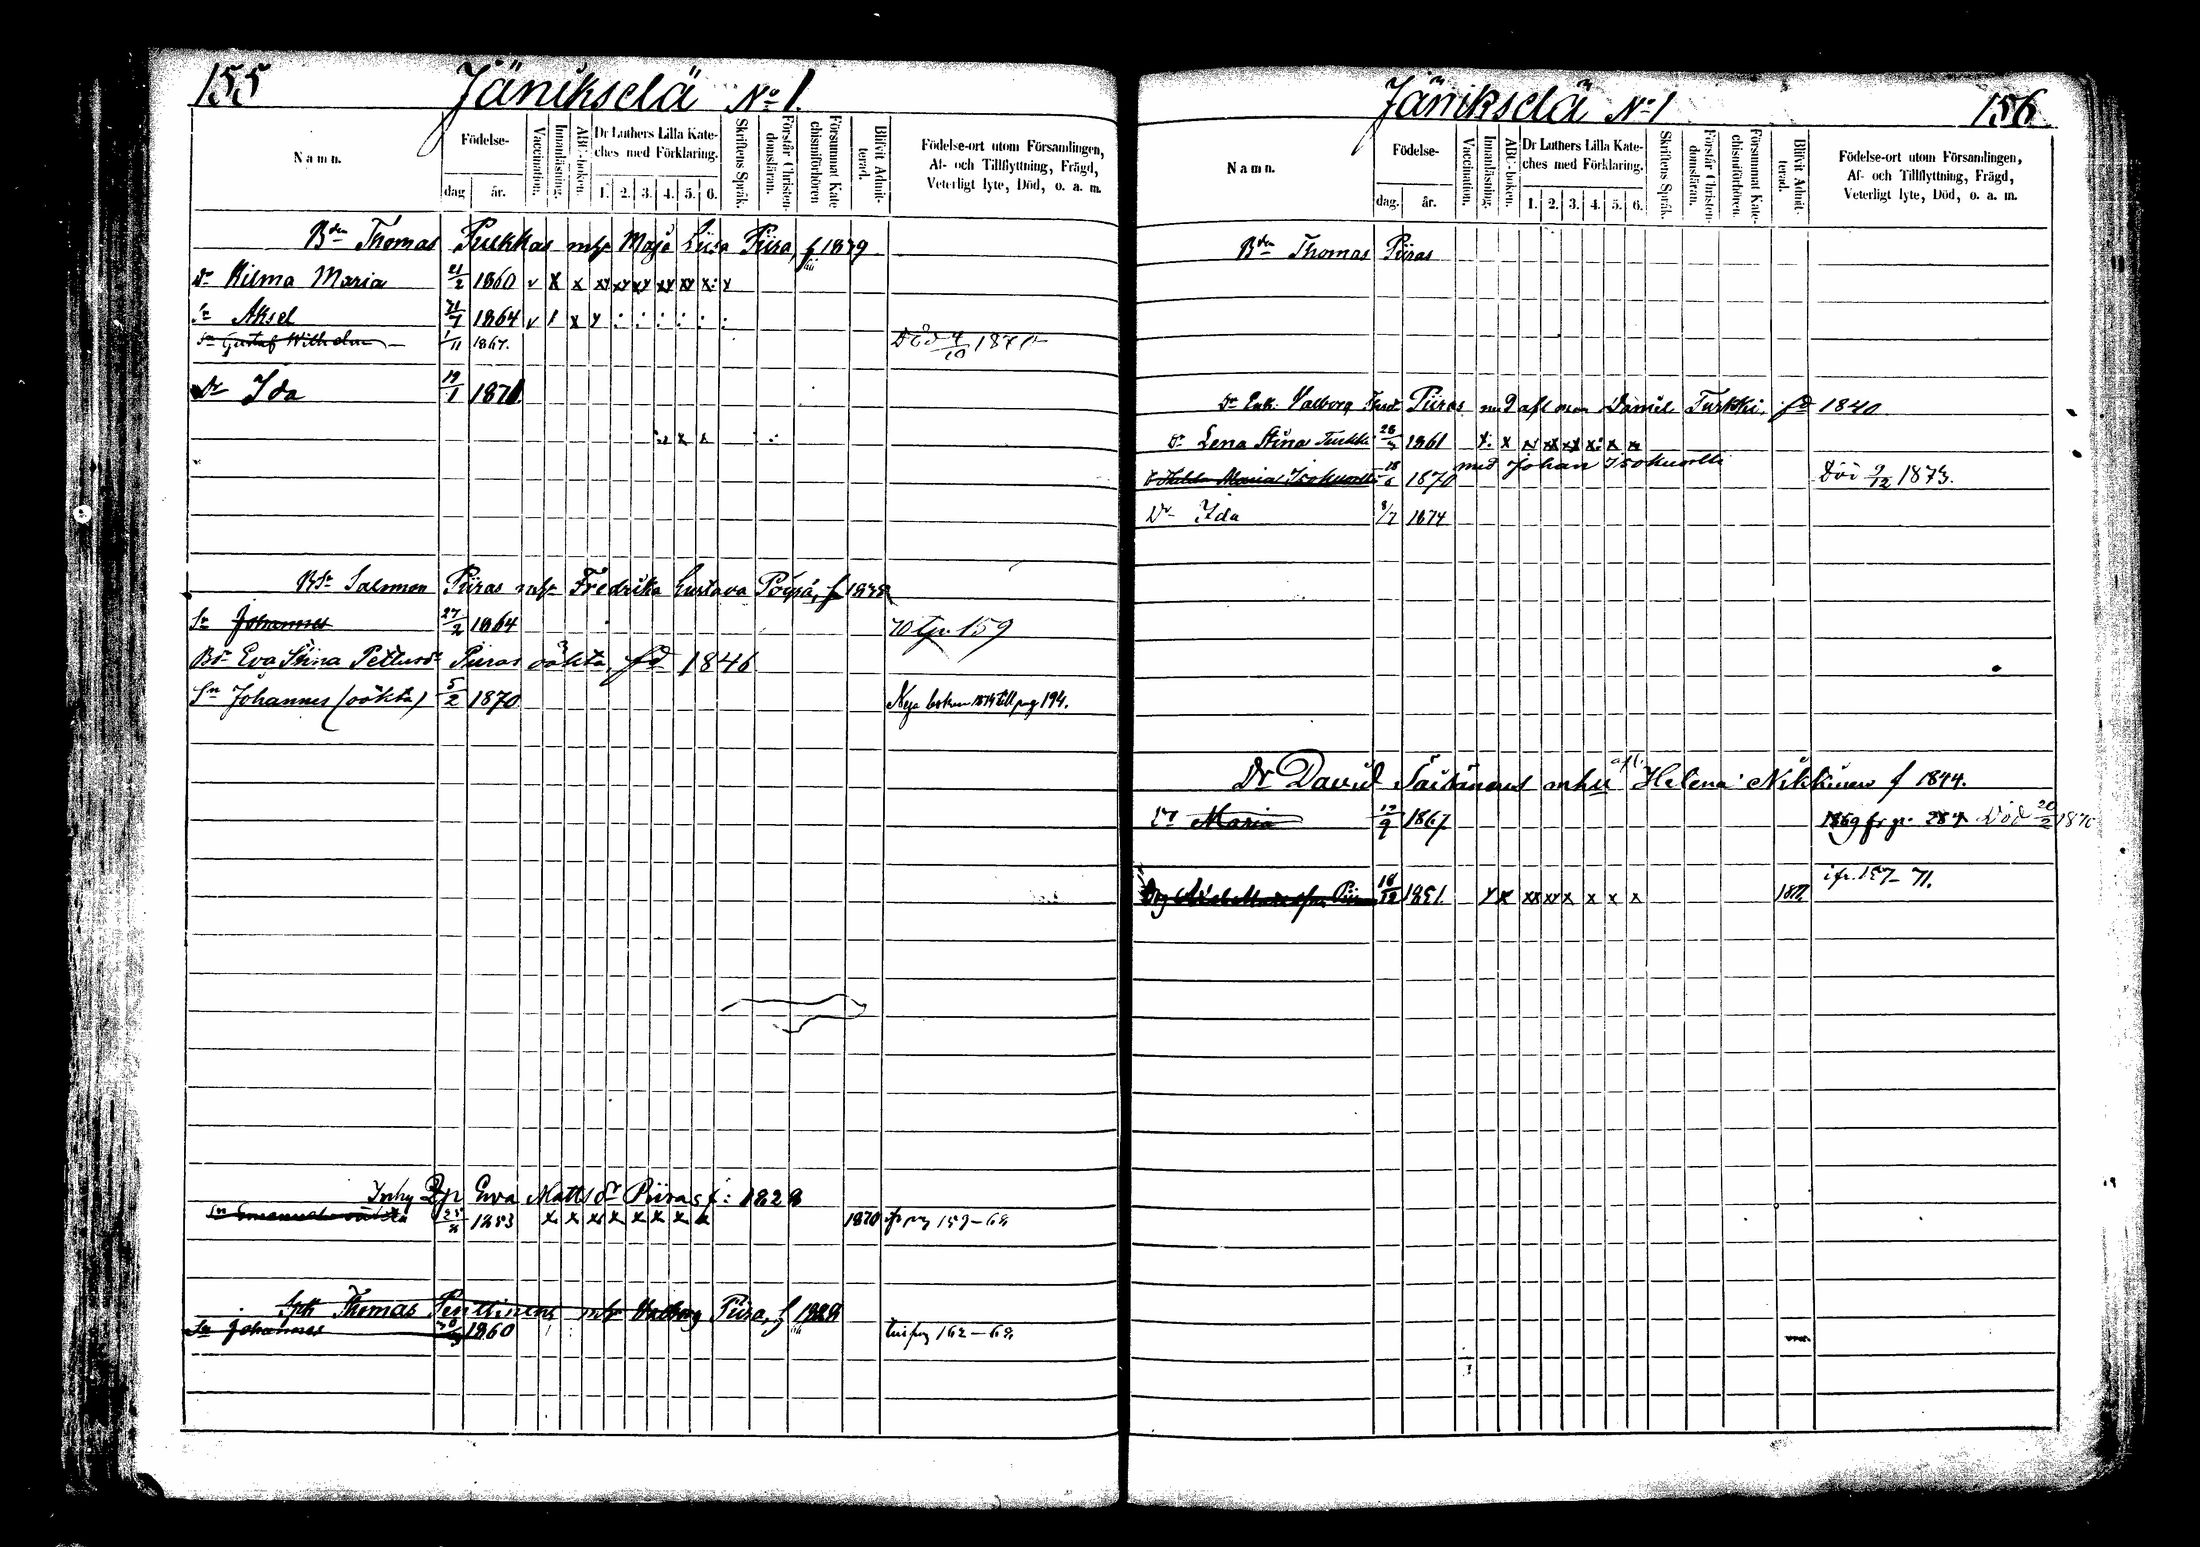 155 Jänikselä No 1.
Namn.
Födelse-
dag
år.
Vaccination.
Innanläsning.
ABC-boken.
Dr Luthers Lilla Kate-
ches med Förklaring.
1. 2. 3. 4. 5. 6.
Skriftens Språk.
Förstår Christen-
domsläran.
Försummat Kate
chismiförhören
Blifvit Admit-
terad.
Födelse-ort utom Församlingen,
Af- och Tillflyttning, Frägd,
Veterligt lyte, Död, o. a. m.
Bdn Thomas Pukkas mhu Maja Lisa Piira, f 1829
Dr Hilma Maria 21/2 1860 v x x xx xx xx xx xx x y
Sn Aksel 21/7 1864 v 1 x y
Sn Gustaf Wilhelm 1/11 1867. Död 4/10 1871
Dr Ida 19/1 1871
x x
BSn Salomon Piiras mhu Fredrika Gustava Pöyjä, f 1838
Sn Johannes 27/2 1864 70 t. p. 159
BDr Eva Stina Pettersdr Piiras oäkta fd 1846
Sn Johannes (oäkta) 5/2 1870 Nya boken 1874 till pag 194.
Inhy Pig Eva Mattsdr Piiras f: 1828
Sn Emanuel oäkta 25/ 1853 x x x x x x x x 1870 fr pag 159-68
Thomas Penttinen mhu Valborg Piira, f 1828
Sn Johannes 1860 till pag 162-68
Jänikselä No 1 156
Namn.
Födelse-
dag.
år.
Vaccination.
Innanläsning.
ABC-boken.
Dr Luthers Lilla Kate-
ches med Förklaring.
1. 2. 3. 4. 5. 6.
Skriftens Språk.
Förstår Christen-
domsläran.
Försummat Kate-
chismiförhören.
Blifvit Admit-
terad.
Födelse-ort utom Församlingen,
Af- och Tillflyttning, Frägd,
Veterligt lyte, Död, o. a. m.
Bdn Thomas Piiras
Dr Enk. Valborg Piiras med afl man Daniel Turkki fd 1840
Dr Lena Stina Turkki 28/ 1861 x. x x xx xx x x x
med Johan Isokuortti
Dr Hilda Maria Isokuortti 18/6 1870 Död 9/12 1873.
Dr Ida 8/7 1874
Dr David mhu afl. Helena Nikkinen f 1844.
Dr Maria 12/9 1867. 1869 fr p. 284 Död 20/2 1870
i fr. 157-71.
Piiras 18/12 1851. y x xx xx x x x x 1871.